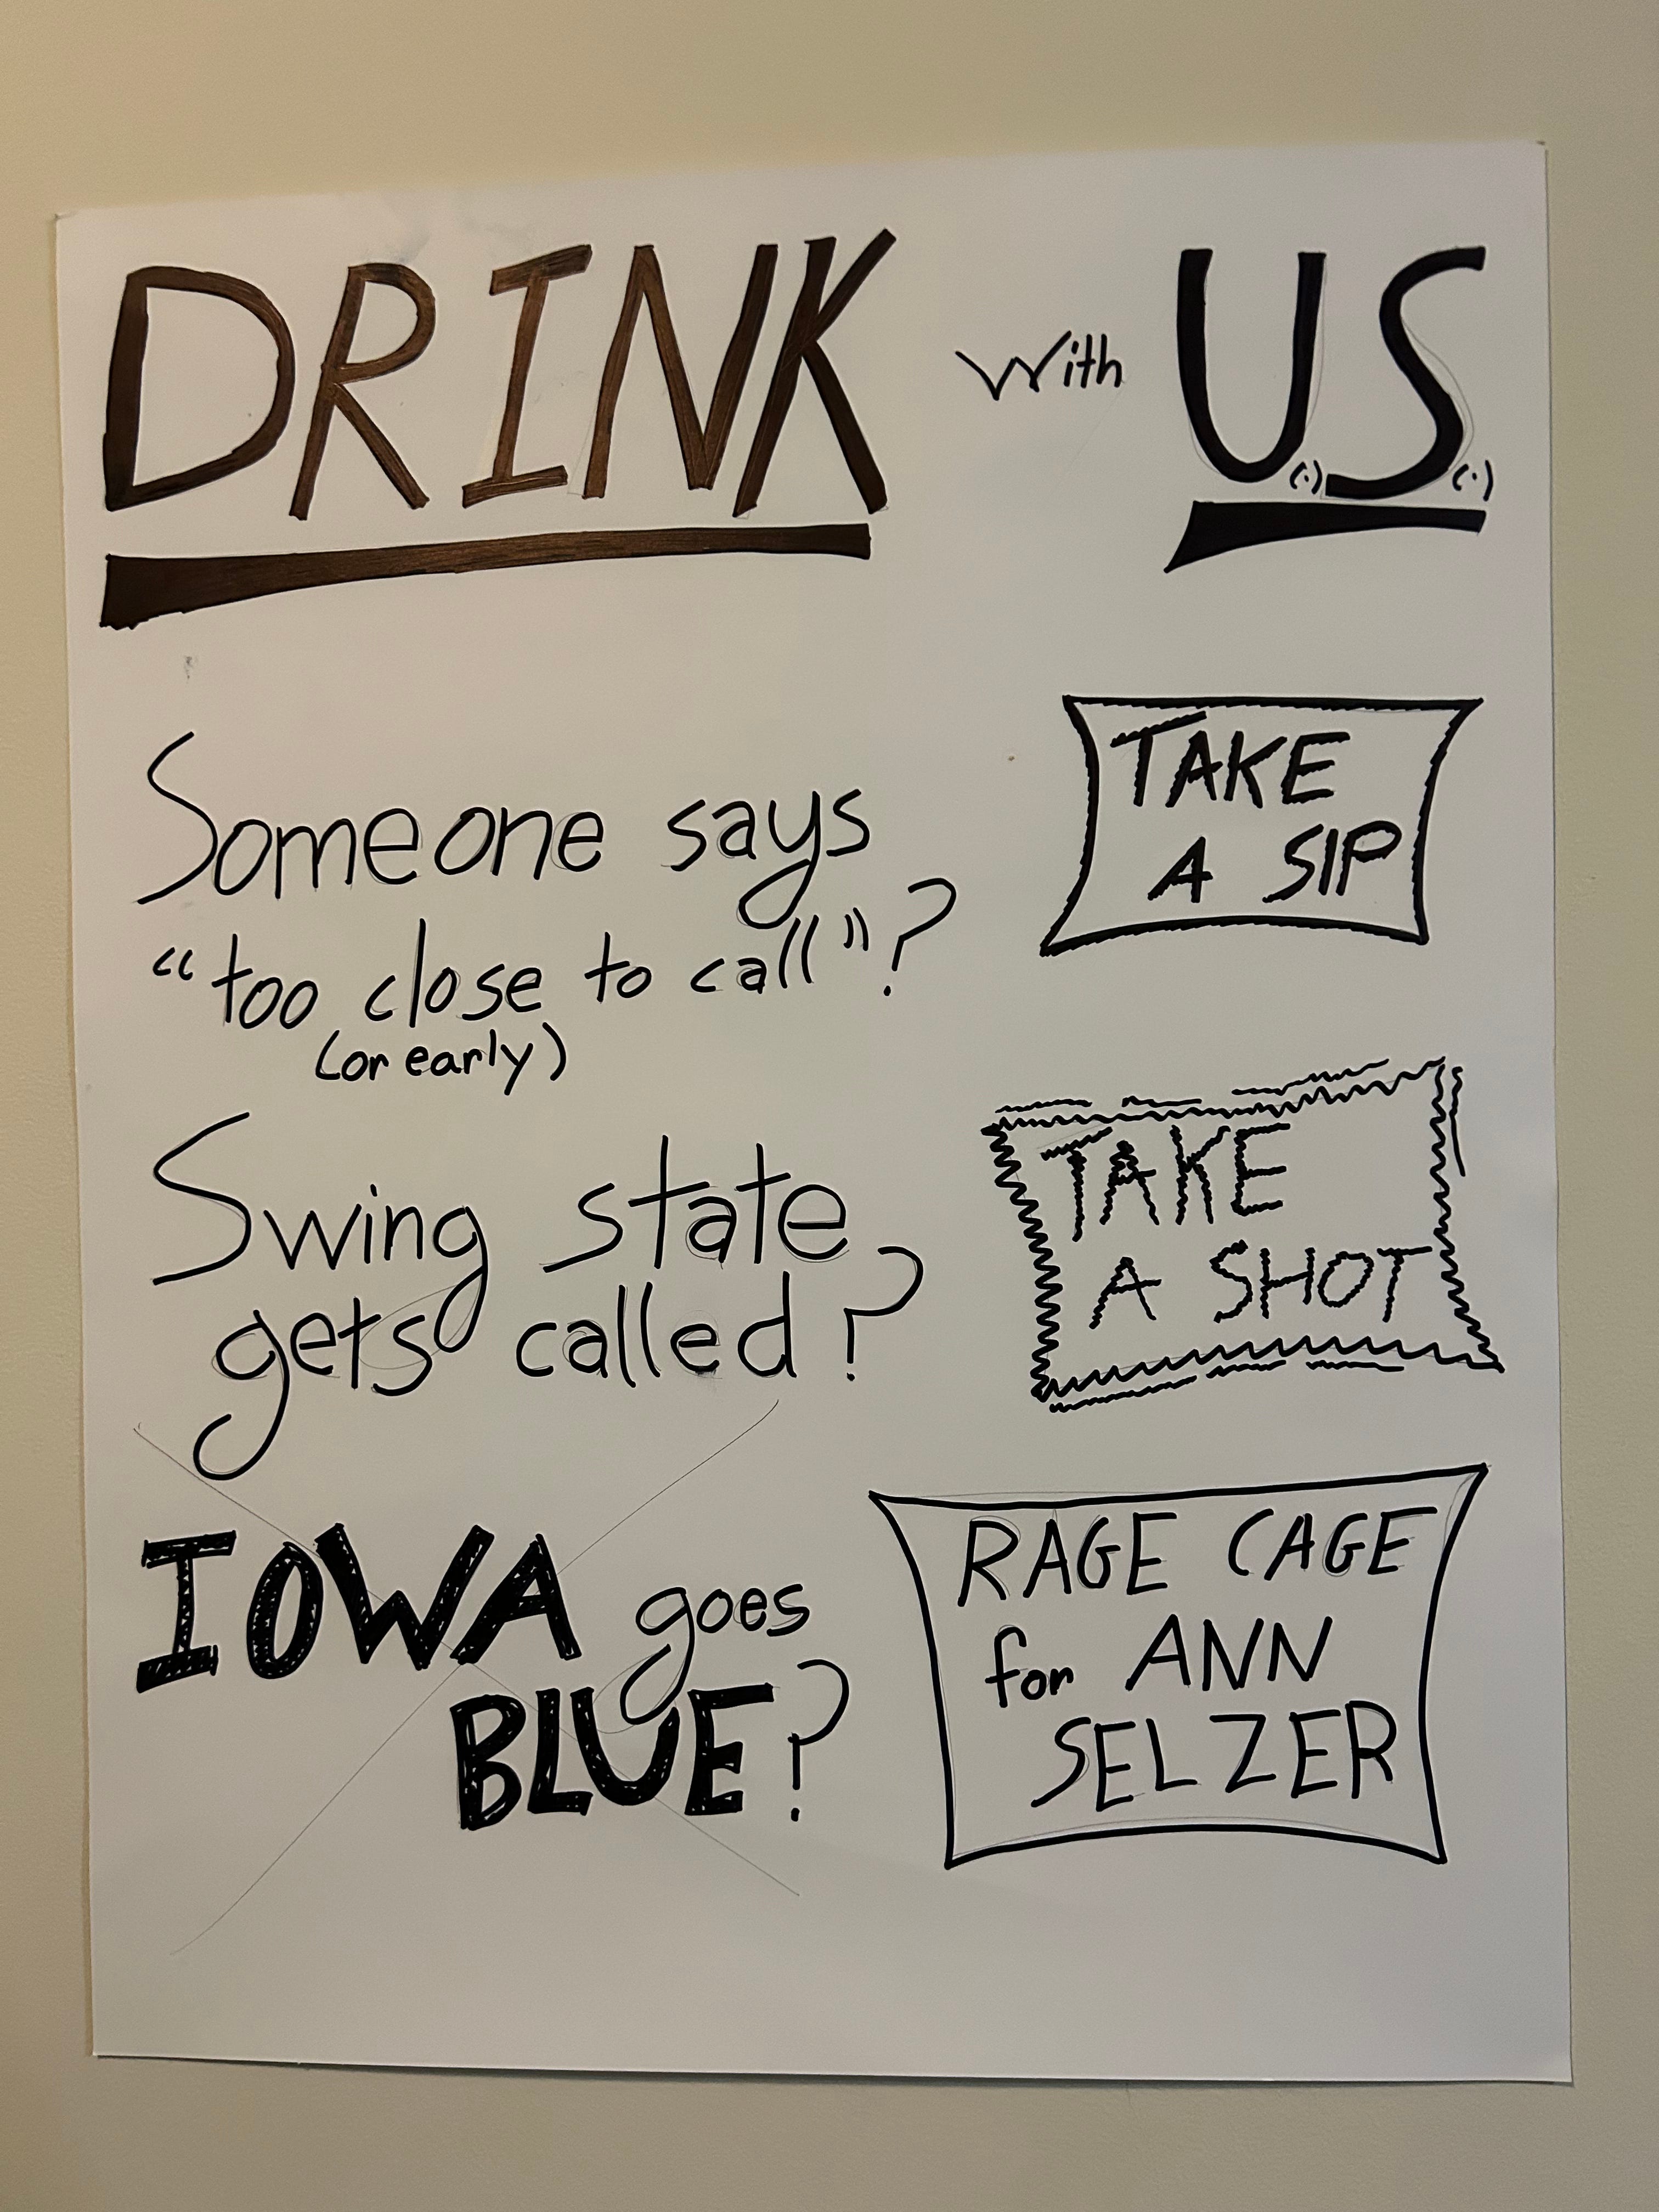 DRINK with U(.)S(.)
Someone says
"too close to call"?
(or early)
TAKE
A SIP
Swing state
gets called?
TAKE
A SHOT
IOWA goes
BLUE?
RAGE CAGE
for ANN
SELZER